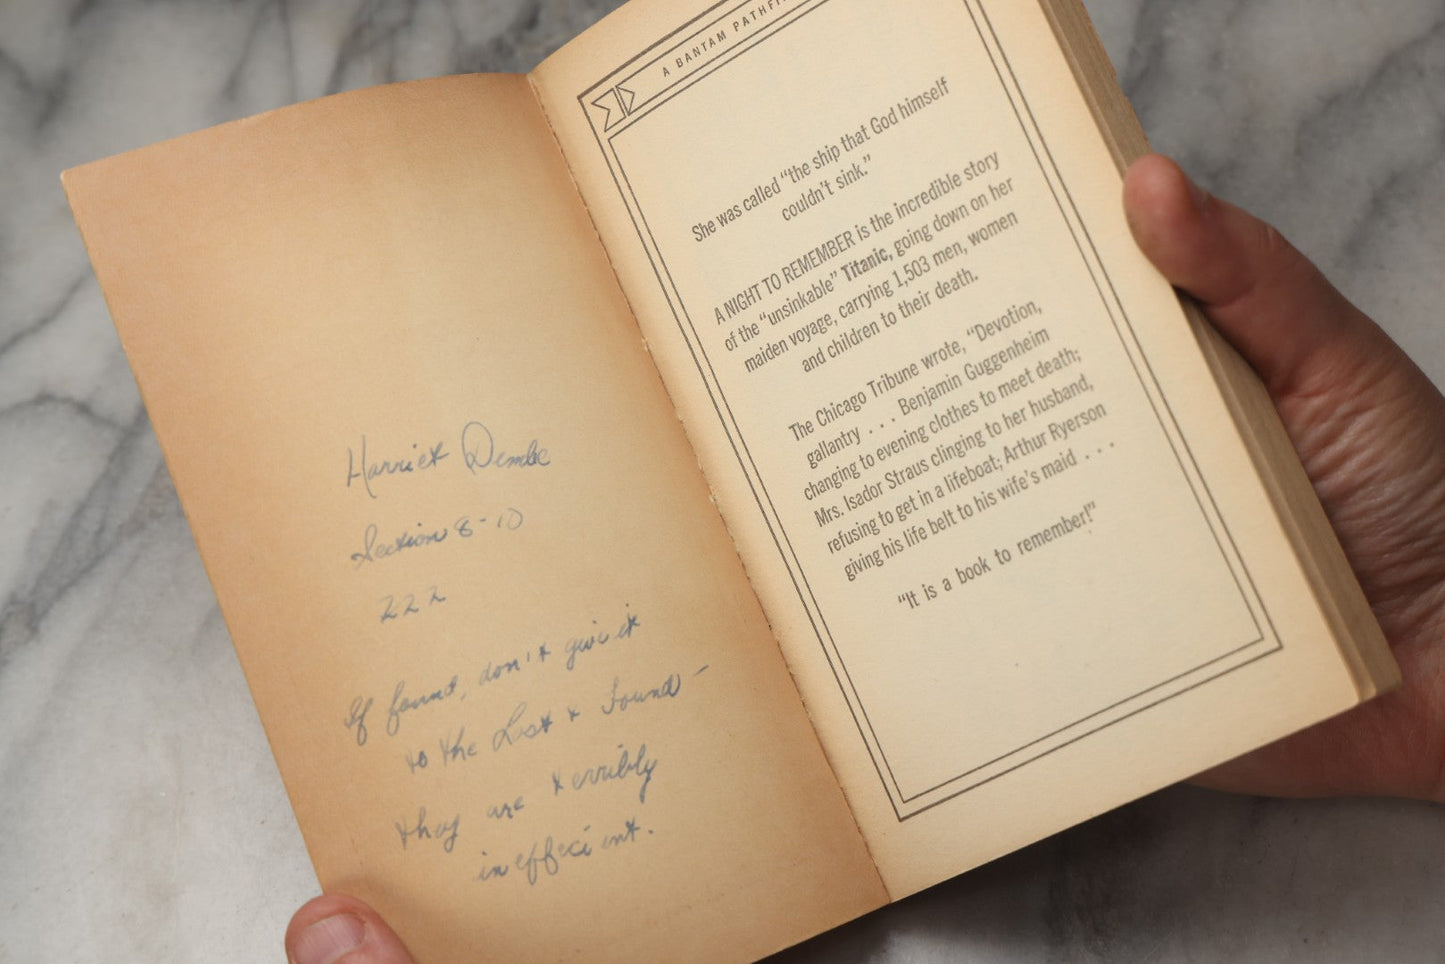 Harriet Dembe
Section 8-10
222
If found, don't give it
to the Lost & Found -
they are terribly
inefficient.
A BANTAM PATHFI
She was called "the ship that God himself
couldn't sink."
A NIGHT TO REMEMBER is the incredible story
of the "unsinkable" Titanic, going down on her
maiden voyage, carrying 1,503 men, women
and children to their death.
The Chicago Tribune wrote, "Devotion,
gallantry . . . Benjamin Guggenheim
changing to evening clothes to meet death;
Mrs. Isador Straus clinging to her husband,
refusing to get in a lifeboat; Arthur Ryerson
giving his life belt to his wife's maid . . .
"It is a book to remember!"